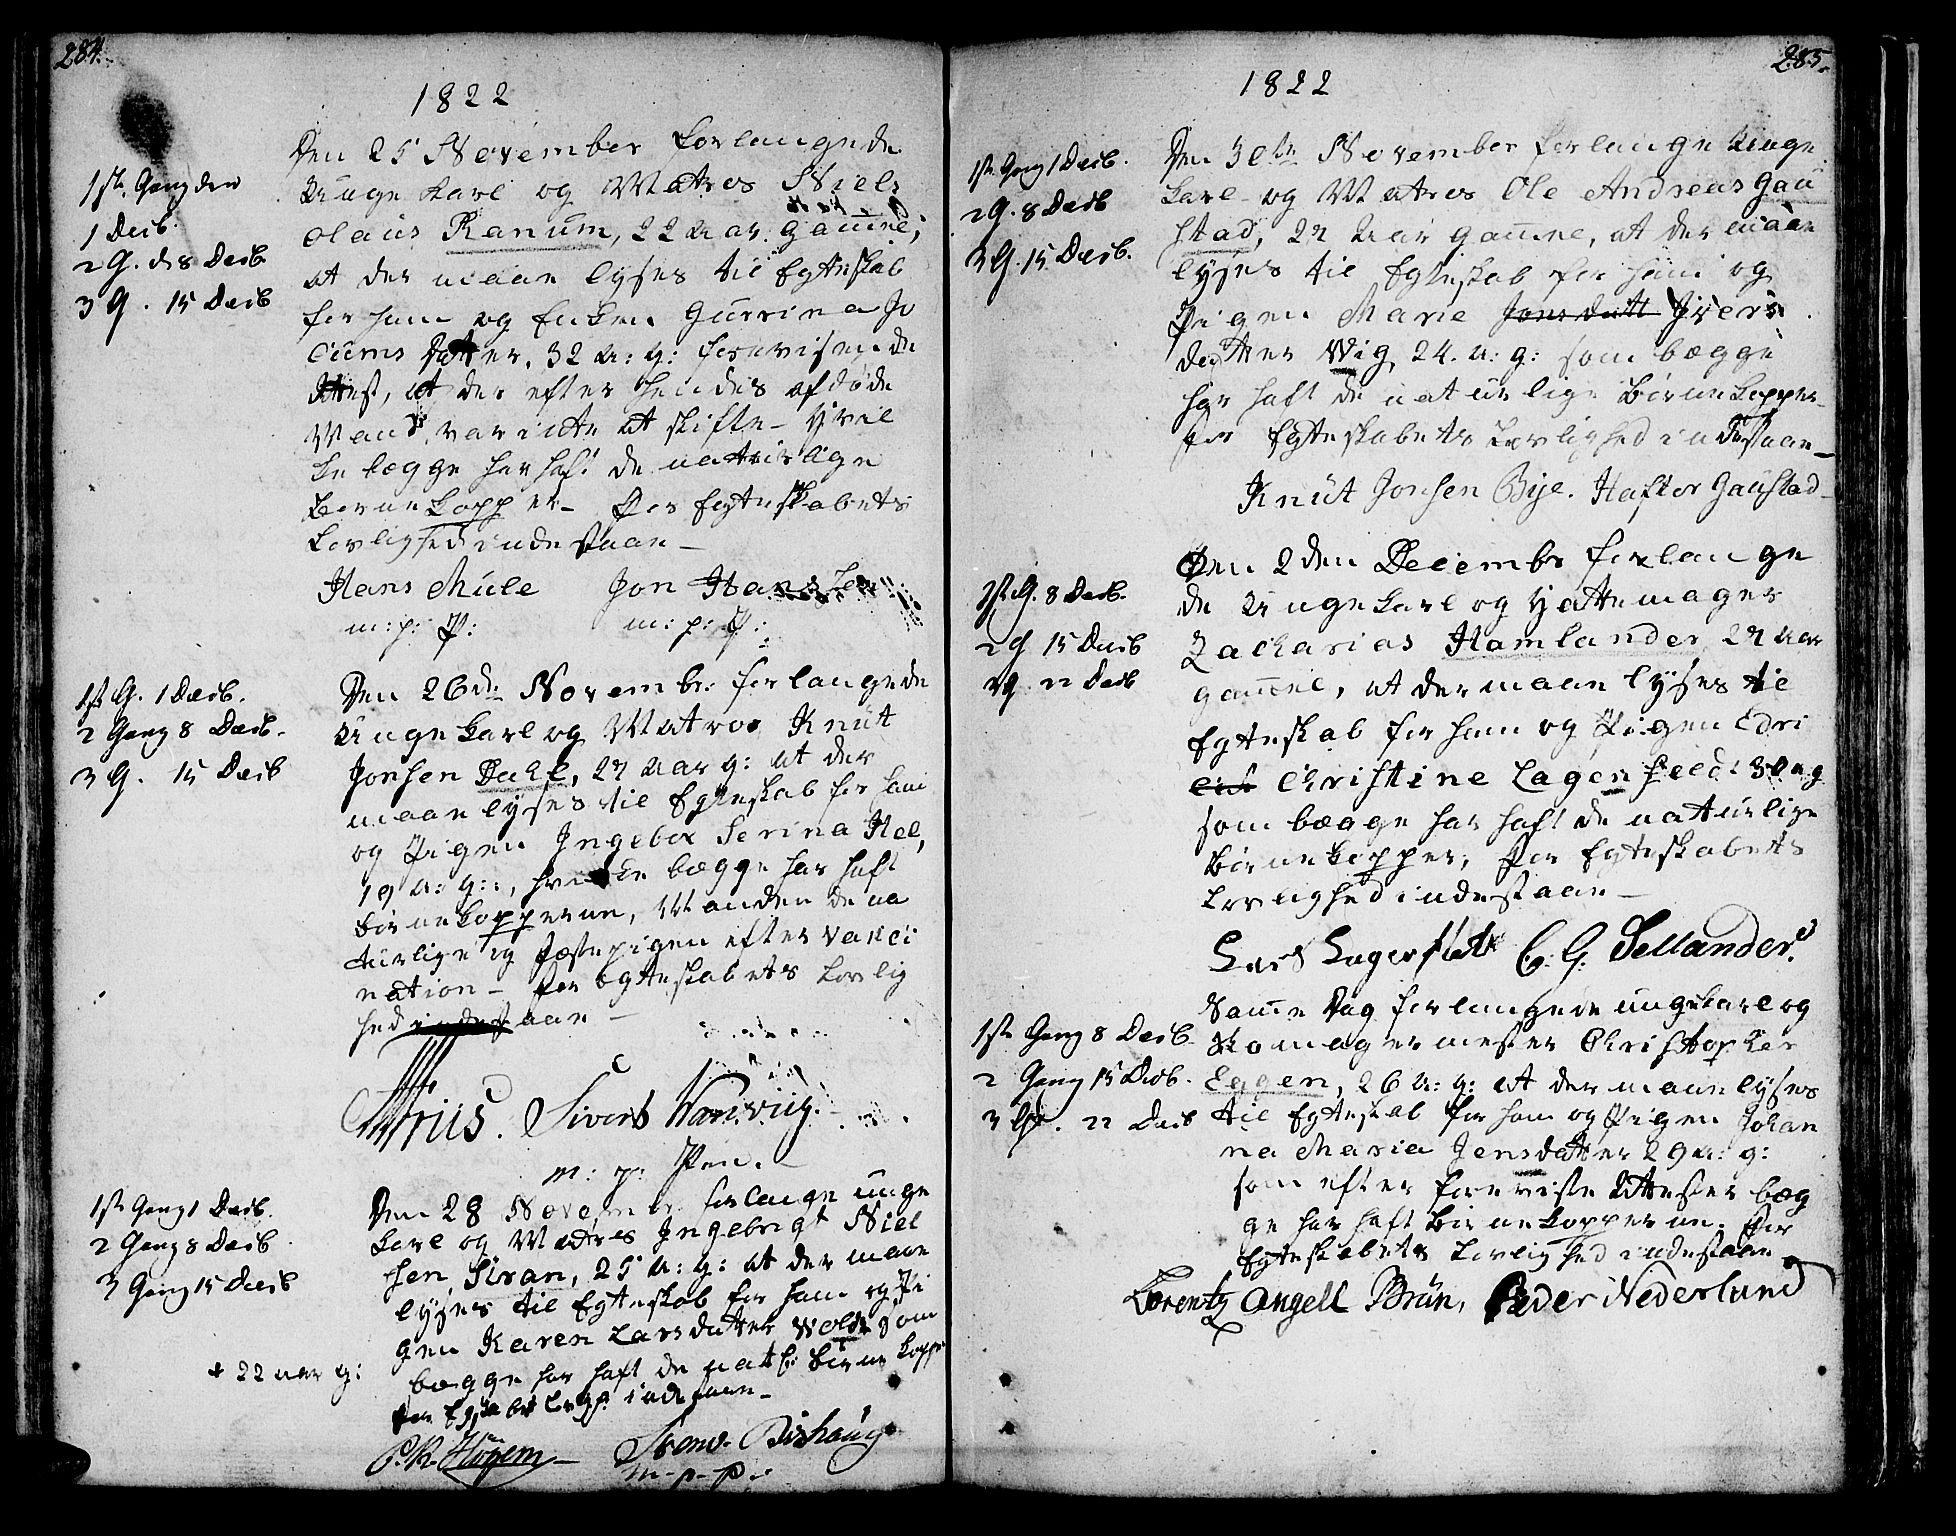 284.
1822
1ste Gang den
1 Decb.
2 G. d 8 Decb
3 G. 15 Decb
Den 25 November forlangede
Unge Karl og Matros Niels
Olaus Ranum, 22 Aar gamel,
at der maae lyses til Egteskab
for ham og Enken Gurrina Jo
cums Datter, 32 A: g: forevisende
Attest, at der efter hendes afdøde
Mand, var intet at skifte – Hvil
ke begge har haft de naturlige
Børnekopper – For Egteskabets
Lovlighed indestaae –
Hans Mule Jon Hans
m: p: P: m: p: P:
1ste G. 1 Decb.
2 Gang 8 Decb.
3 G. 15 Decb
Den 26de Novembr: forlangede
Unge Karl og Matros Knut
Jonsen Dahl, 27 Aar g: at der
maae lyses til Egteskab for ham
og Pigen Ingebor Serina Hel,
19 A: g:, hvilke begge har haft
Børnekopperne, Manden de na
turlige og Fæstepigen efter Vakci
nation – For Egteskabets Lovlig
hed indestaae –
Sivert
m: p: Pen.
1ste Gang 1 Decb.
2 Gang 8 Decb
3 Gang 15 Decb
+ 22 aar g:
Den 28 Novembr forlange unge
Karl og Matros Ingebrigt Niel
sen Siran, 25 A: g: at der maae
lyses til Egteskab for ham og Pi
gen Karen Larsdatter Wold som
begge har haft de natl: Børnekopper
For indestaae –
Svend
m – p – P:
285.
1822
1ste Gang 1 Decb.
2 G. 8 Decb
3 G. 15 Decb.
Den 30te November forlange Unge
Karl og Matros Ole Andreas Gau
stad, 27 Aar gamel, at der maae
lyses til Egteskab for ham og
Pigen Marie Jonsdatt Ivers
datter Wig, 24. A: g: som begge
har haft de naturlige Børnekopper –
for Egteskabets Lovlighed indestaae –
Knut Jonsen Bye. Hafter Gaustad –
1ste G. 8 Decb.
2 G 15 Decb
3 G 22 Decb
Den 2den Decembr forlange
de Ungekarl og Hattemager
Zacharias Hamlander, 27 Aar
gamel, at der maae lyses til
Egteskab for ham og Pigen Edri
Christine Lagersfeldt 30 a g
som begge har haft de naturlige
Børnekopper, For Egteskabets
Lovlighed indestaae –
Lars Lagerfeldt C. G. Sellander.
1ste Gang 8 Decb.
2 Gang 15 Decb.
3 G. 22 Decb
Same Dag forlangede ungekarl og
Skomagermester Christopher
Eggen, 26 A: g: at der maae lyses
til Egteskab for ham og Pigen Johan
na Maria Jensdatter 29 A: g:
som efter foreviste Attester beg
ge har haft Børnekopperne. For
Egteskabets Lovlighed indestaae –
Lorentz Angell Brün, Peder Nederlund